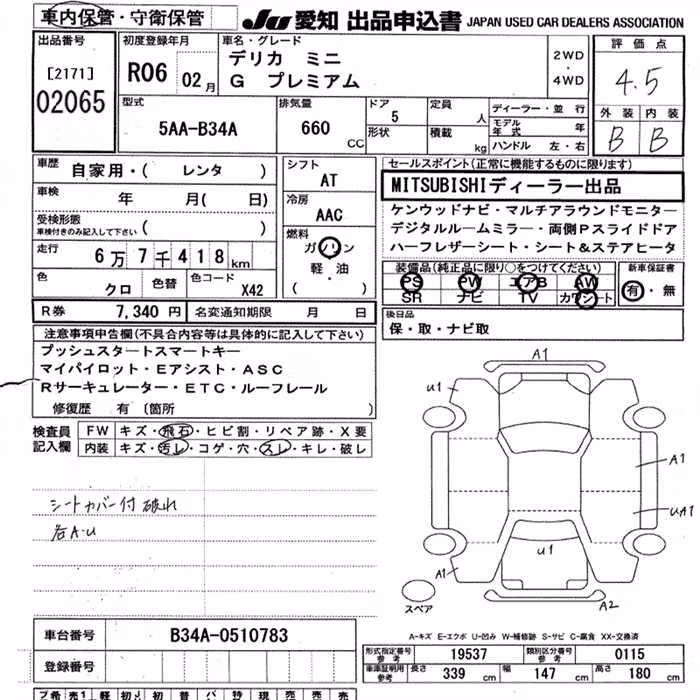 車内保管・守衛保管 JU 愛知 出品申込書 JAPAN USED CAR DEALERS ASSOCIATION
出品番号 [2171] 02065
初度登録年月 R06 02月
車名・グレード デリカ ミニ
G プレミアム
2WD・4WD
評価点 4.5
外装 内装
B B
型式 5AA-B34A
排気量 660 CC
ドア 5
形状
定員 人
積載 kg
ディーラー・並行
モデル年式 年
ハンドル 左・右
車歴 自家用・( レンタ )
車検 年 月( 日)
受検形態
車検付きのみ記入して下さい ( )
走行 6万7千418km
色 クロ 色替 色コード X42
R券 7,340円 名変通知期限 月 日
シフト AT
冷房 AAC
燃料 ガソリン
軽・油
( )
セールスポイント(正常に機能するものに限ります)
MITSUBISHIディーラー出品
ケンウッドナビ・マルチアラウンドモニター
デジタルルームミラー・両側Pスライドドア
ハーフレザーシート・シート&ステアヒータ
装備品(純正品に限り○をつけてください)
PS PW エアB AW
SR ナビ TV カワシート
新車保証書
有・無
後日品
保・取・ナビ取
注意事項申告欄(不具合内容等は具体的に記入して下さい)
プッシュスタートスマートキー
マイパイロット・Eアシスト・ASC
Rサーキュレーター・ETC・ルーフレール
修復歴 有 〔箇所 〕
検査員記入欄
FW キズ・飛石・ヒビ割・リペア跡・X要
内装 キズ・汚レ・コゲ・穴・スレ・キレ・破レ
シートカバー付 破れ
各A・U
A1
U1
A1
UA1
U1
A1
A2
スペア
A-キズ E-エクボ U-凹み W-補修跡 S-サビ C-腐食 XX-交換済
車台番号 B34A-0510783
登録番号
形式指定番号 参考 19537 類別区分番号 参考 0115
車庫証明用 参考 長さ 339 cm 幅 147 cm 高さ 180 cm